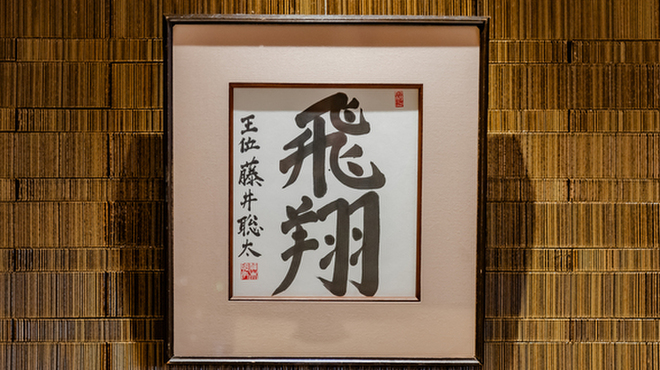 飛翔
王位 藤井聡太